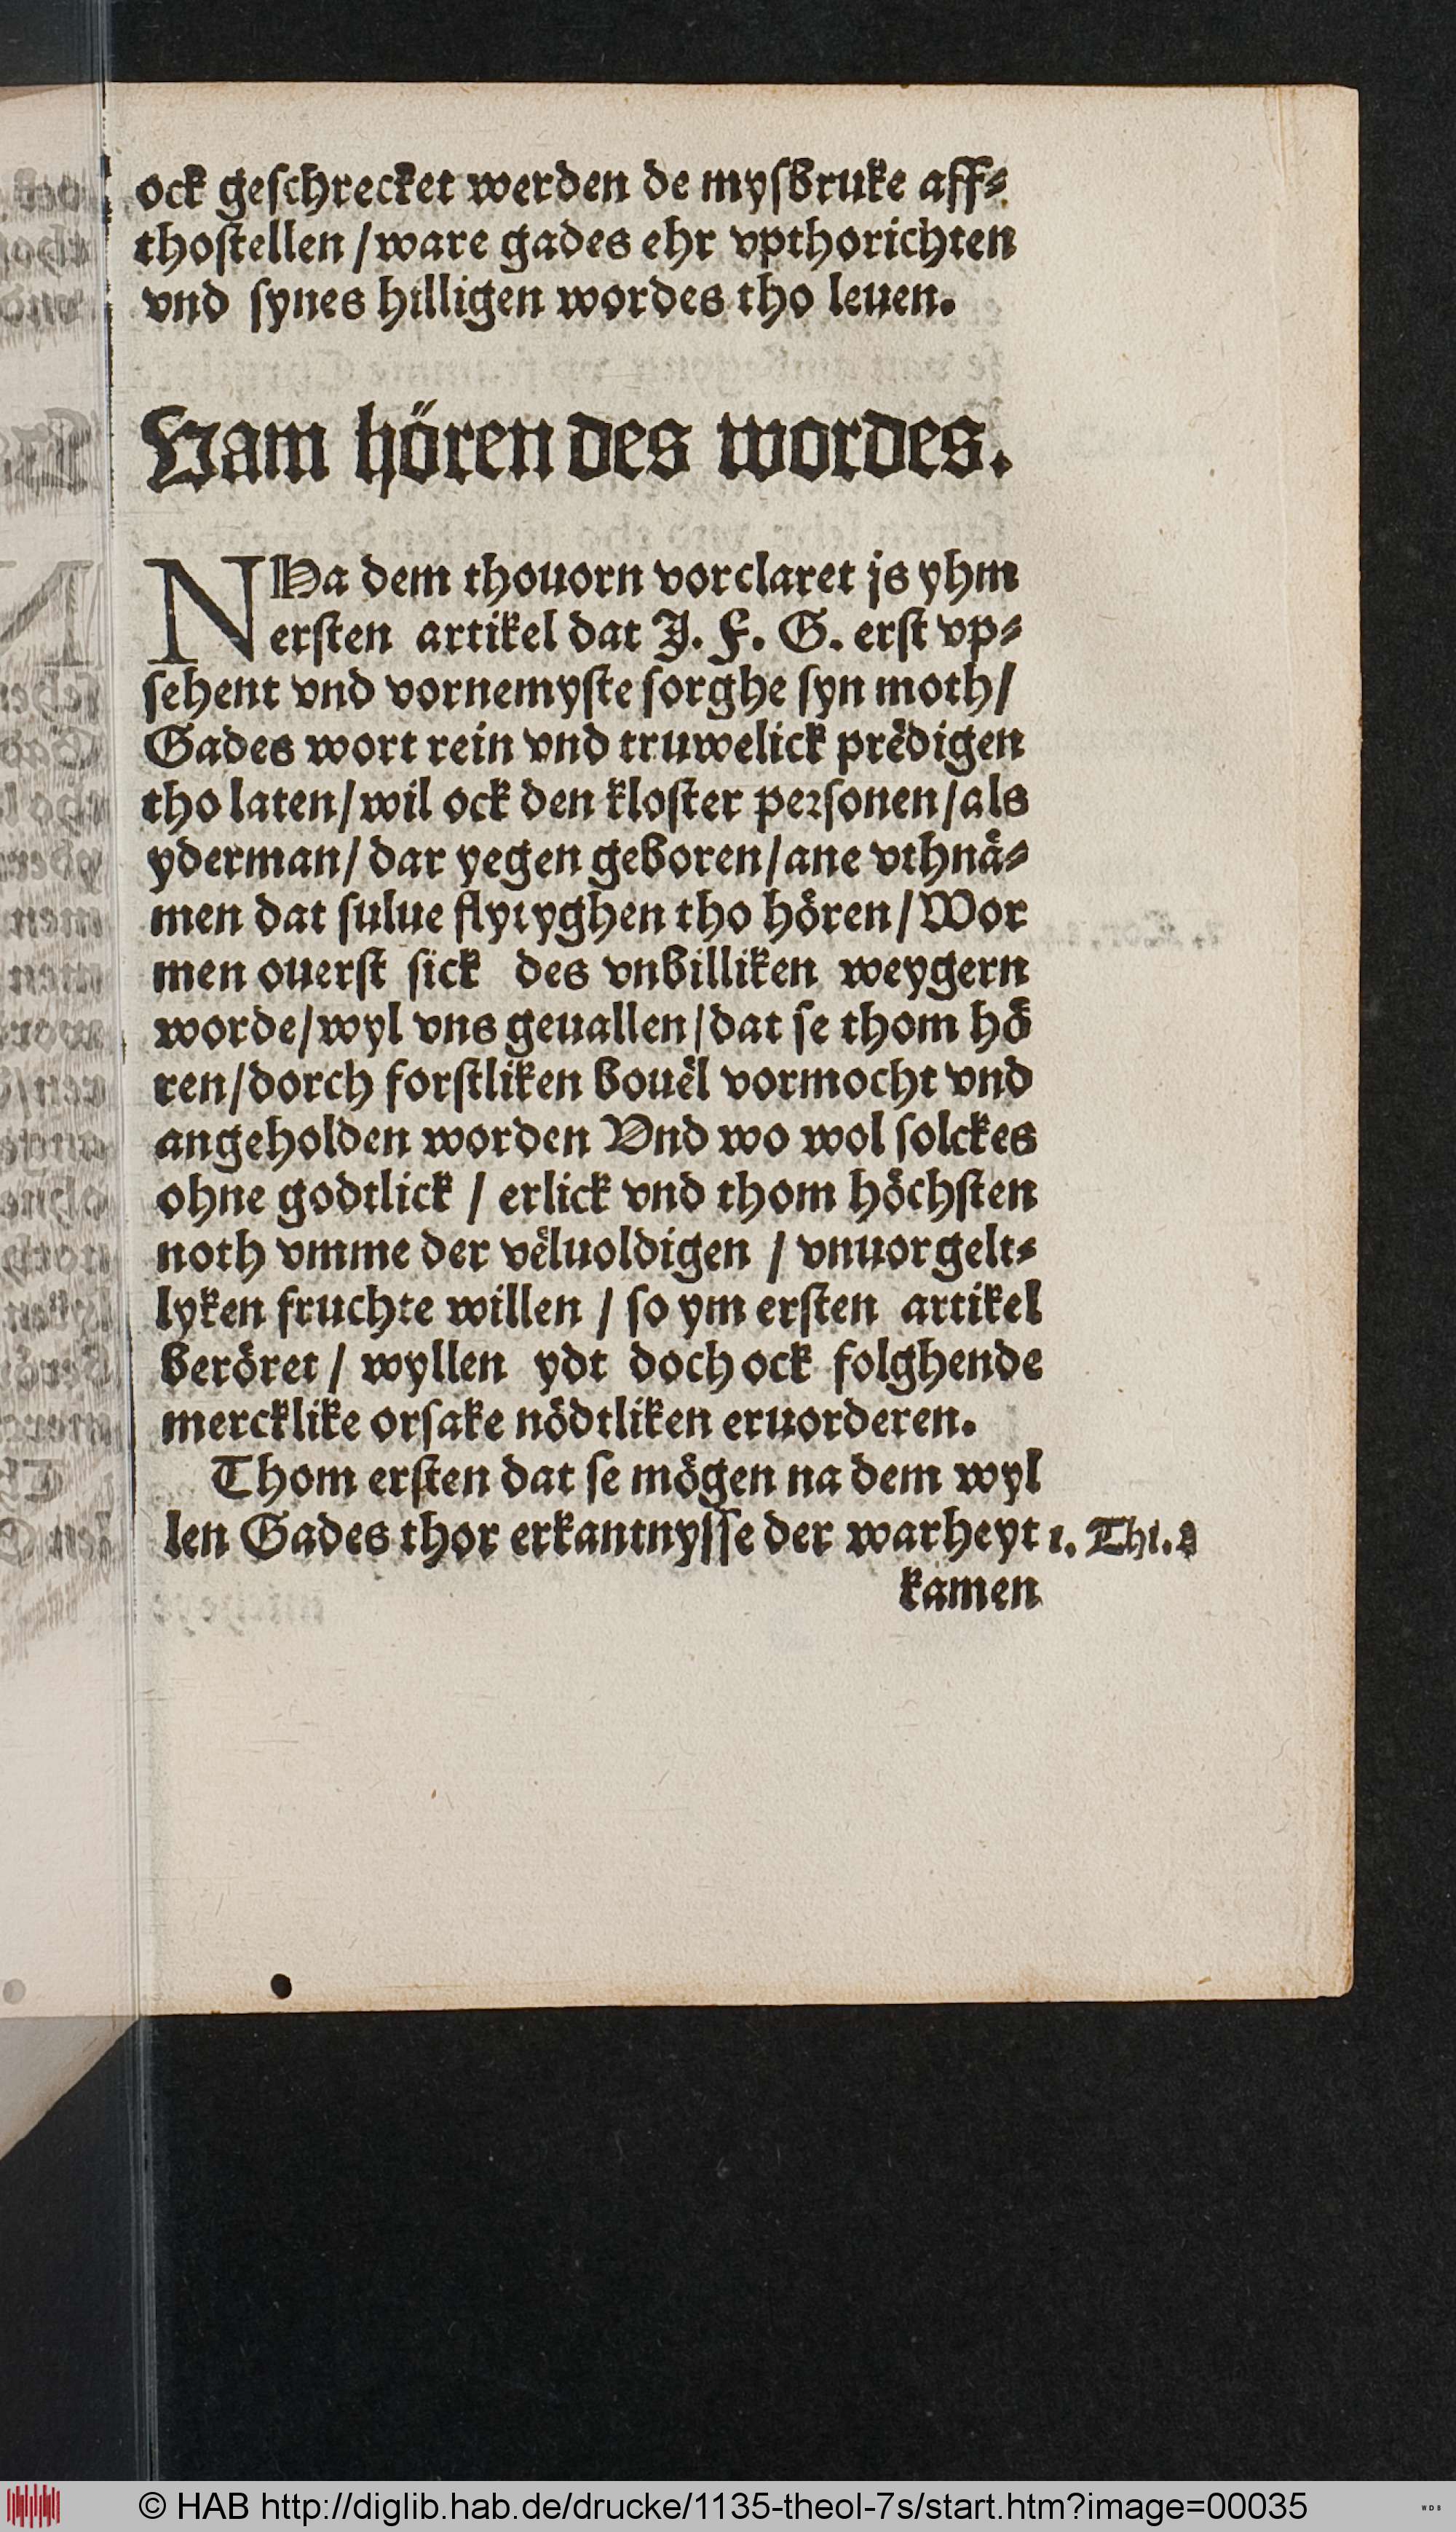 ock geſchrecket werden de myſbruke aff⸗
thoſtellen / ware gades ehr vpthorichten
vnd ſynes hilligen wordes tho leuen.
Vam hören des wordes.
NHa dem thouorn vorclaret js yhm
erſten artikel dat J. F. G. erſt vp⸗
ſehent vnd vornemyſte ſorghe ſyn moth /
Gades wort rein vnd truwelick prēdigen
tho laten / wil ock den kloſter perſonen / als
yderman / dar yegen geboren / ane vthnå⸗
men dat ſulue flytyghen tho hören / Wor
men ouerſt ſick des vnbilliken weygern
worde / wyl vns geuallen / dat ſe thom hö
ren / dorch forſtliken bouēl vormocht vnd
angeholden worden Vnd wo wol ſolckes
ohne godtlick / erlick vnd thom höchſten
noth vmme der vēluoldigen / vnuorgelt⸗
lyken fruchte willen / ſo ym erſten artikel
beröret / wyllen ydt doch ock folghende
mercklike orſake nödtliken eruorderen.
Thom erſten dat ſe mögen na dem wyl
len Gades thor erkantnyſſe der warheyt 1. Thi.
kamen
© HAB http://diglib.hab.de/drucke/1135-theol-7s/start.htm?image=00035